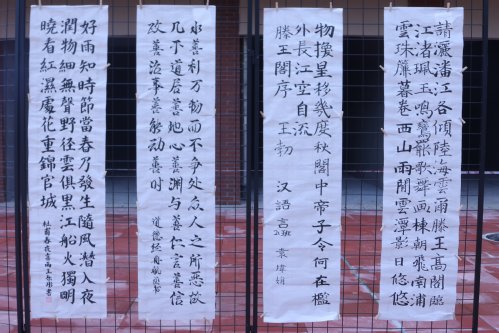 請灑潘江各傾陸海雲爾滕王高閣臨
江渚珮玉鳴鸞罷歌舞畫棟朝飛南浦
雲珠簾暮卷西山雨閑雲潭影日悠悠
物換星移幾度秋閣中帝子今何在檻
外長江空自流
滕王閣序 王勃
汉語言2班 袁瑋娟
水善利万物而不争处众人之所恶故
几于道居善地心善渊与善仁言善信
政善治事善能动善时
道德经
好雨知時節當春乃發生隨風潛入夜
潤物細無聲野徑雲俱黑江船火獨明
曉看紅濕處花重錦官城
杜甫春夜喜雨